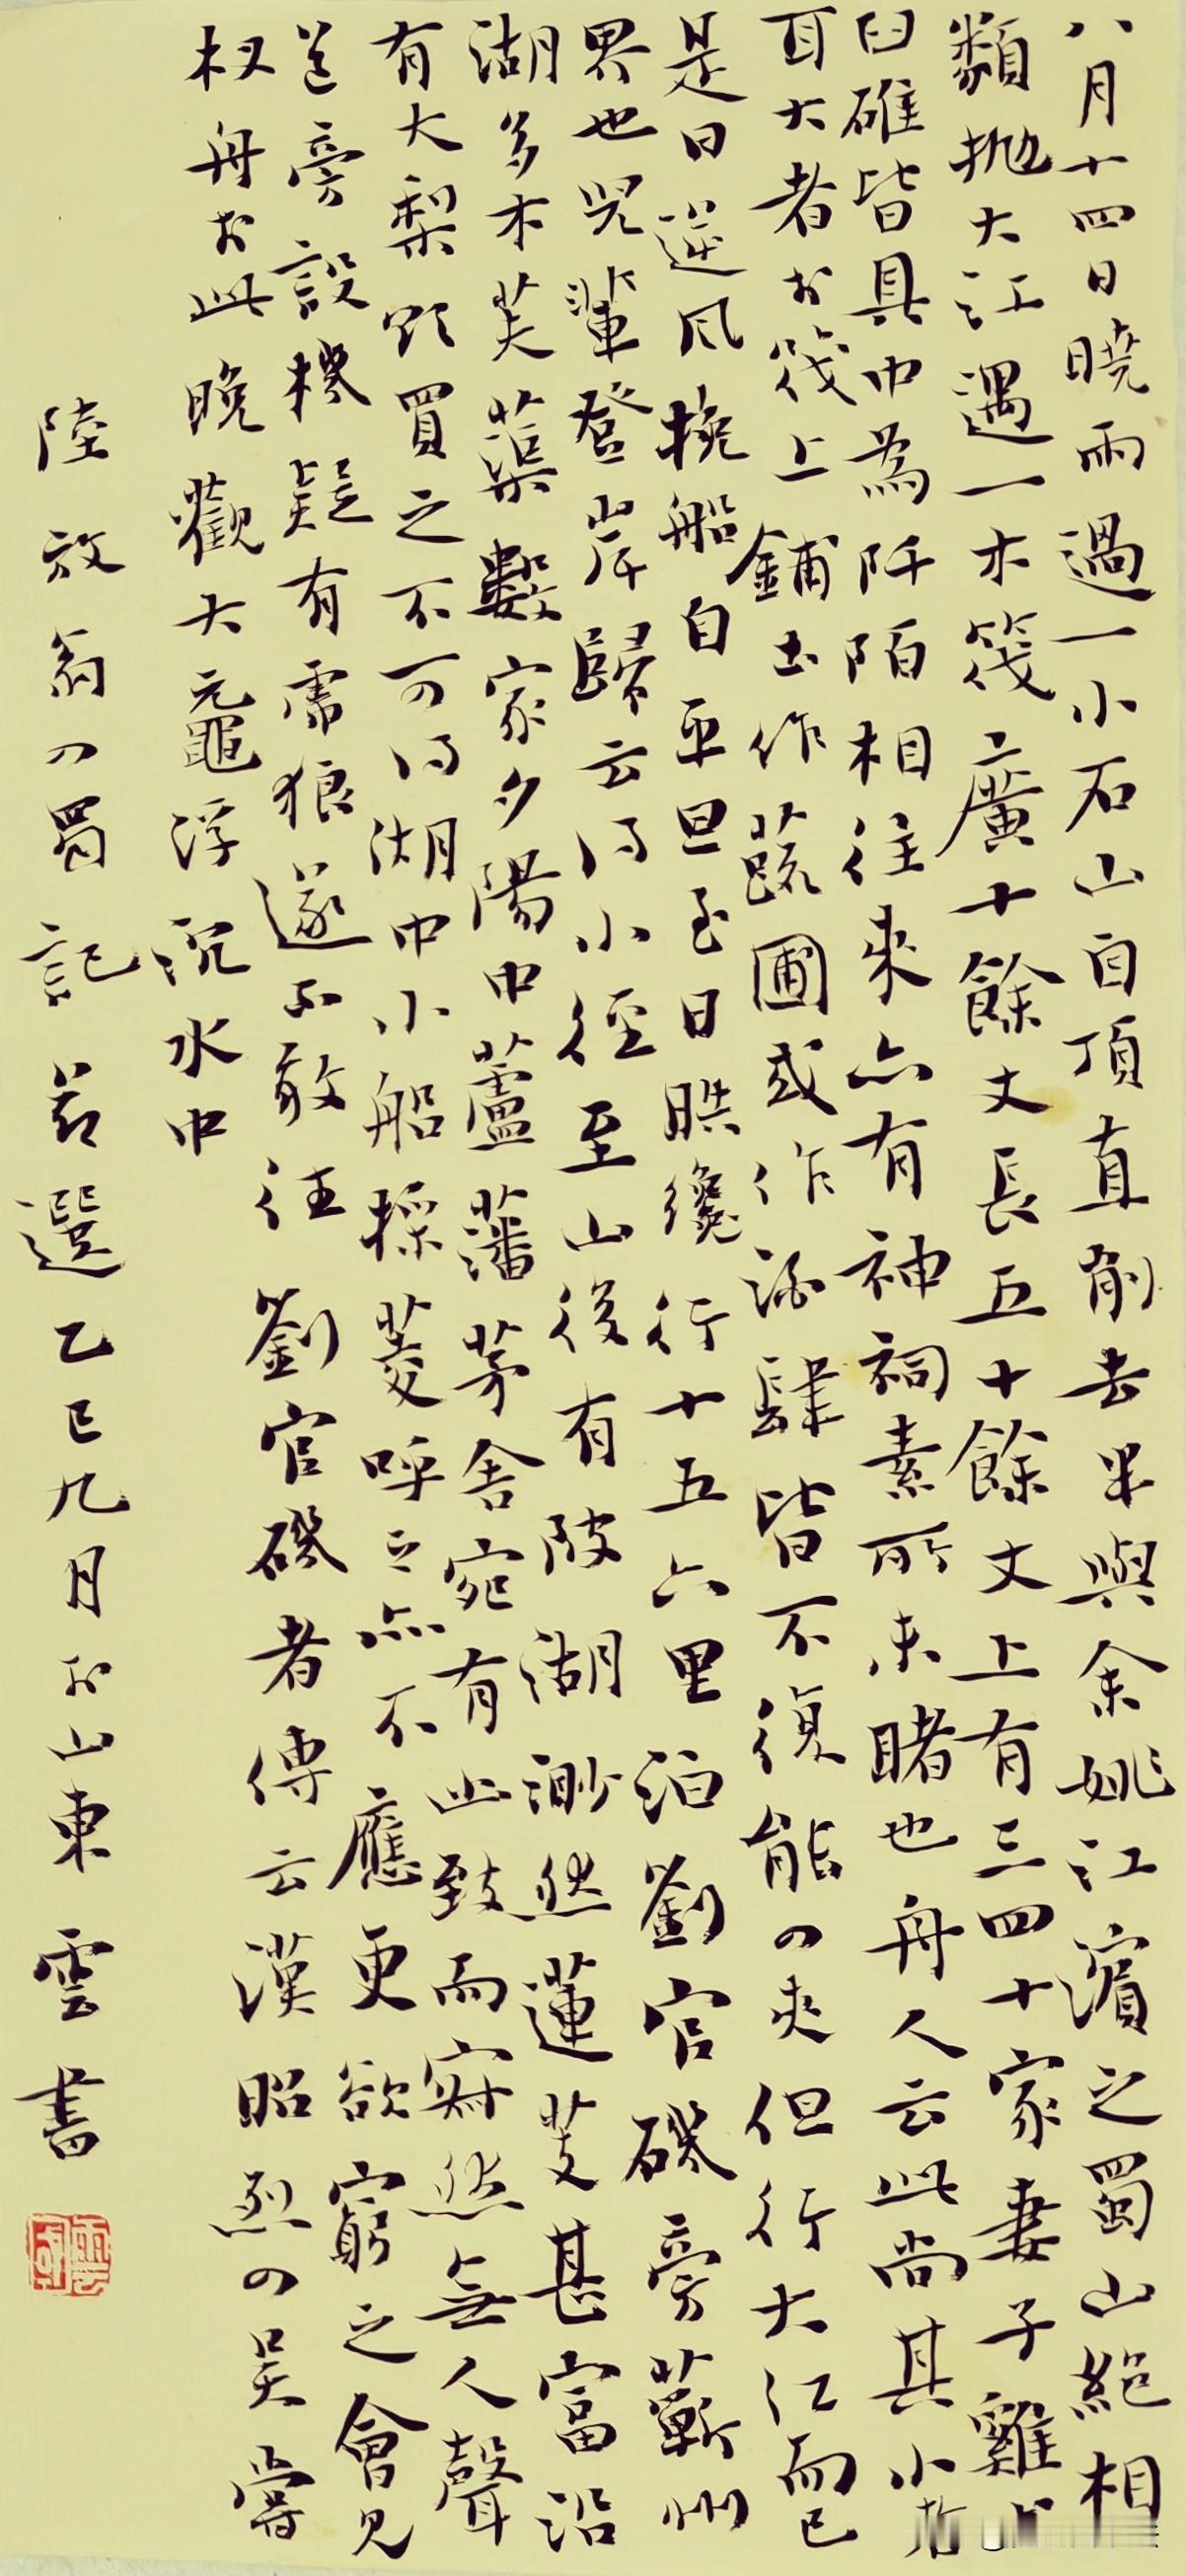 八月十四日曉雨過一小石山自頂直削去半與余姚江濱之蜀山絕相
類拋大江遇一木筏廣十餘丈長五十餘丈上有三四十家妻子雞犬
臼碓皆具中為阡陌相往來亦有神祠素所未睹也舟人云此尚其小者
耳大者於筏上鋪土作蔬圃或作酒肆皆不復能入夾但行大江而已
是日逆風挽船自平旦至日昳纔行十五六里泊劉官磯旁蘄州
界也兒輩登岸歸云得小徑至山後有陂湖渺然蓮芰甚富沿
湖多木芙蕖數家夕陽中蘆藩茅舍宛有幽致而寂然無人聲
有大梨欲買之不可得湖中小船採菱呼之亦不應更欲窮之會見
道旁設機疑有虎狼遂不敢往劉官磯者傳云漢昭烈入吳嘗
杈舟於此晚觀大黿浮沉水中
陸放翁入蜀記節選乙巳九月於山東雲書